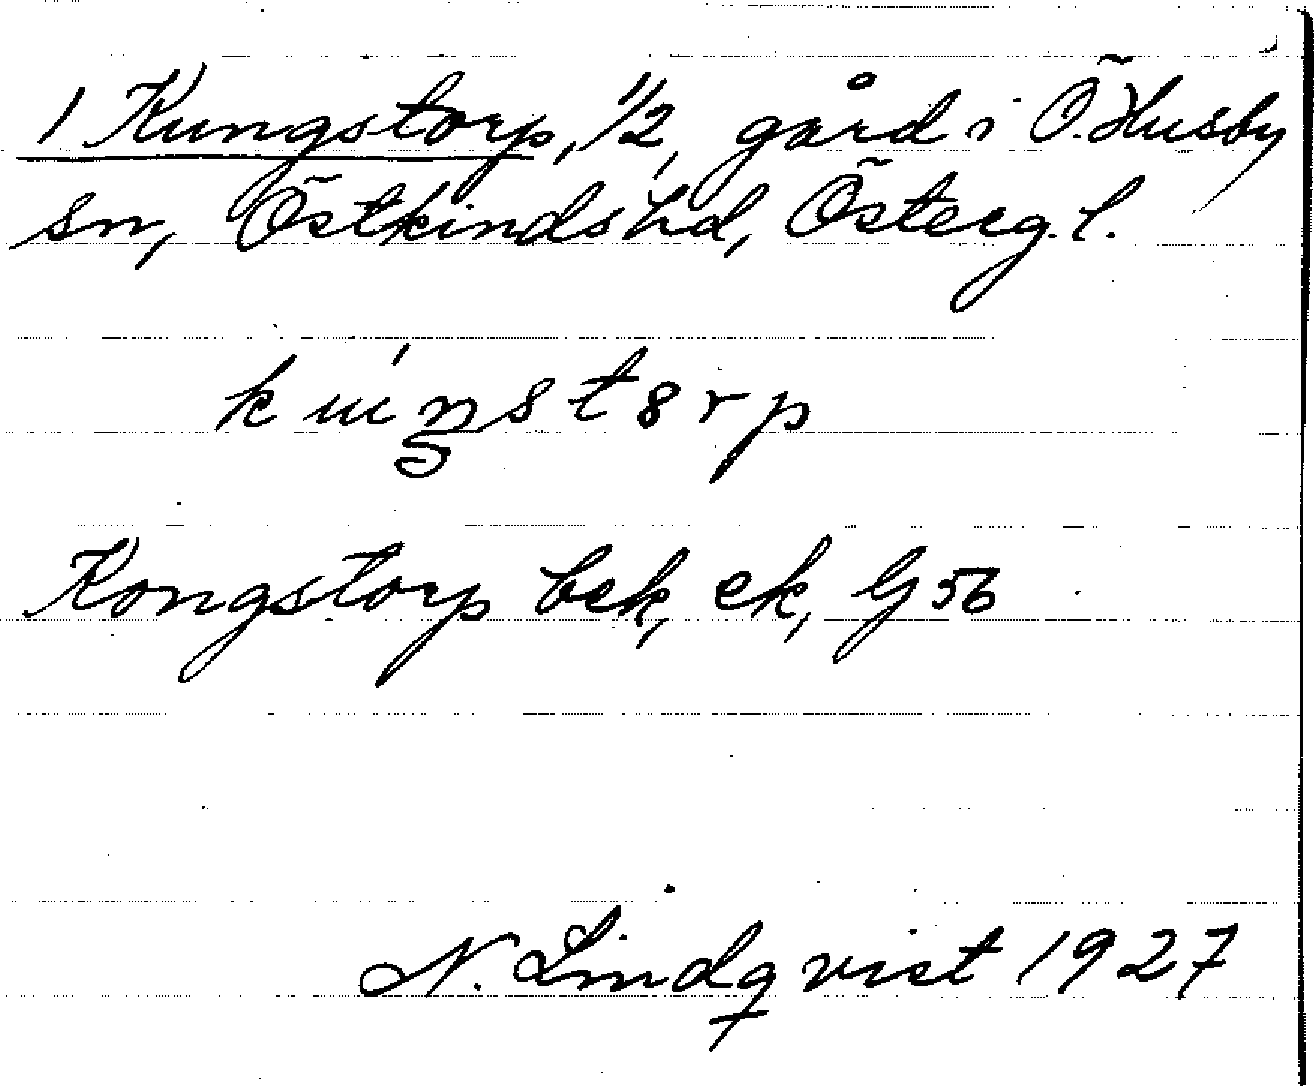 1 Kungstorp, 1/2, gård i Ö. Husby
sn, Östkinds hd, Österg. l.
kuŋstɵrp
Kongstorp bek, ek, G 56
N. Lindqvist 1927